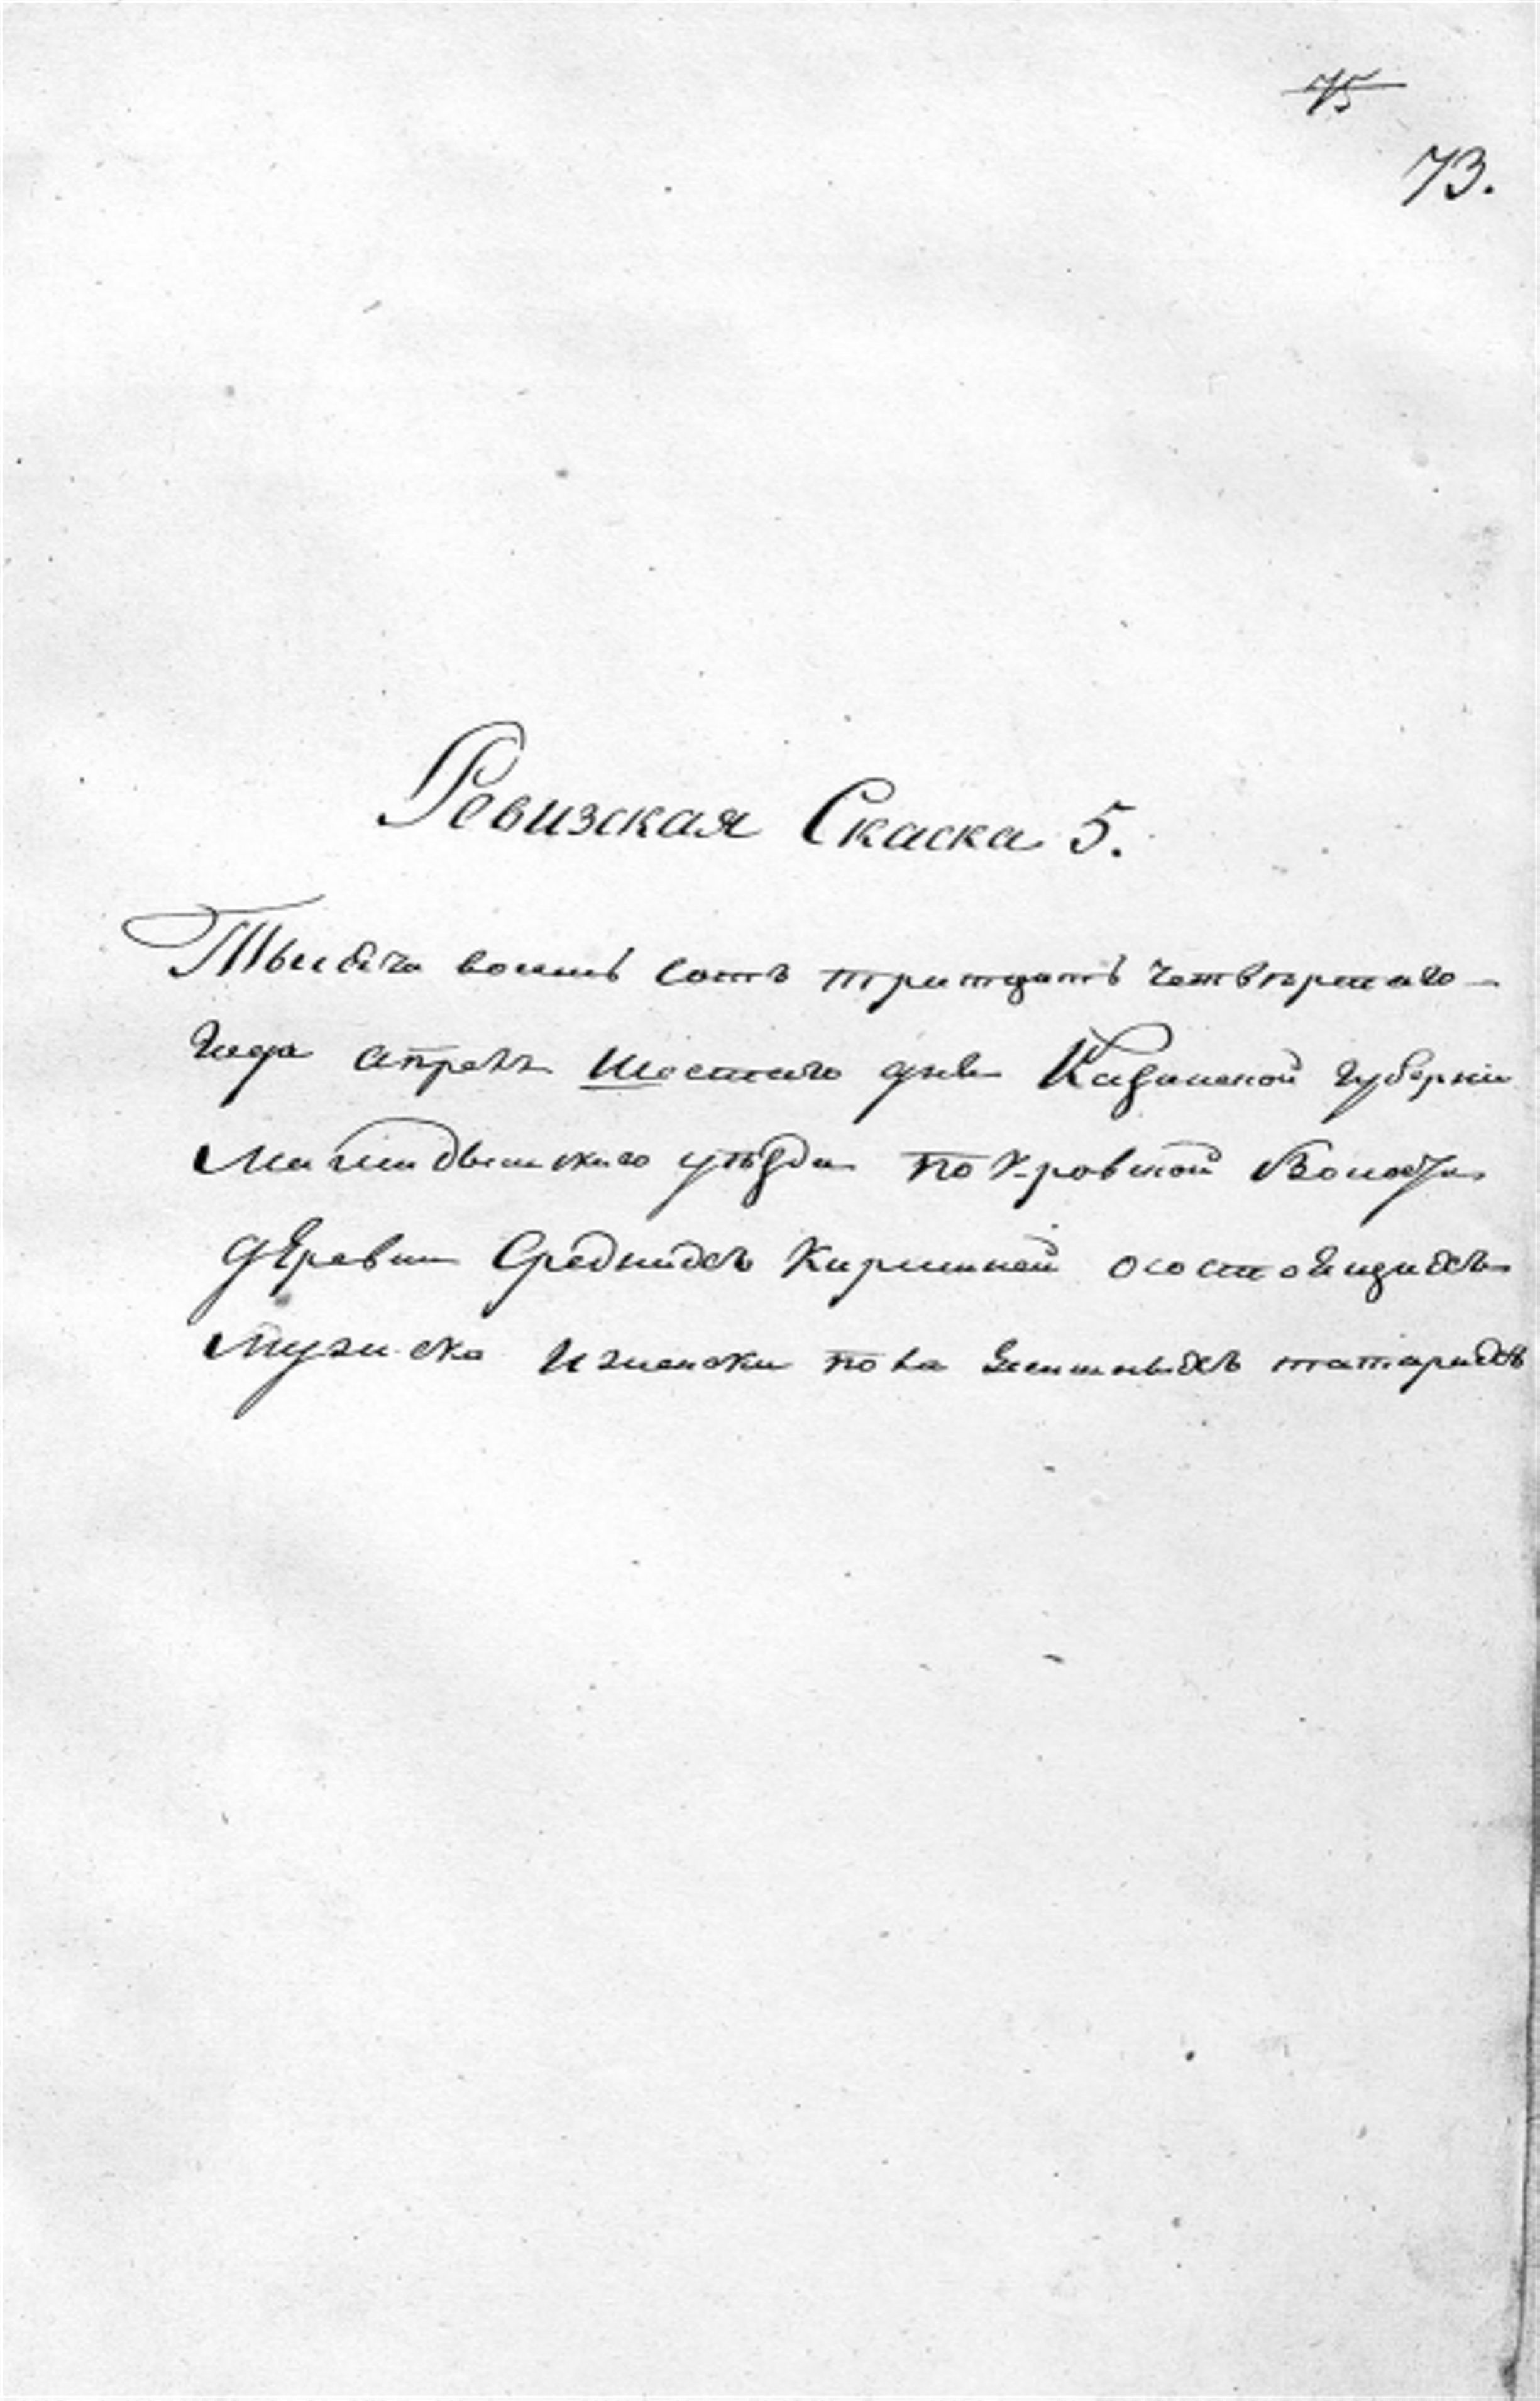 75
73.
Ревизская Скаска 5.
Тысеча восемь сотъ тритцать четвертаго
года апреля шестаго дня Казанской губернии
Мамадышскаго уѣзда Покровской Волости
деревни Среднихъ Кирменей о состоящихъ
мужеска и женска пола ясашныхъ татарахъ